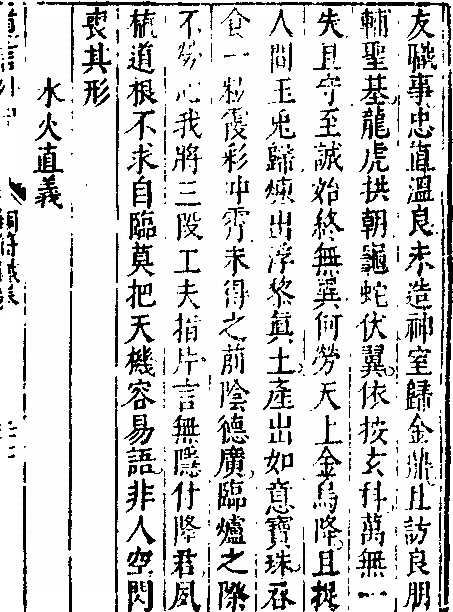 友職事忠直溫良未造神室歸金鼎且訪良朋
輔聖基龍虎拱朝龜蛇伏翼依按玄科萬無一
失且守至誠始終無異何勞天上金烏降且捉
人間玉兎歸煉出浮黎眞土產出如意寶珠吞
食一粒霞彩冲霄未得之前陰德廣臨爐之際
不勞心我將三段工夫指片言無隱付降君夙
植道根不求自臨莫把天機容易語非人空閃
喪其形
水火直義